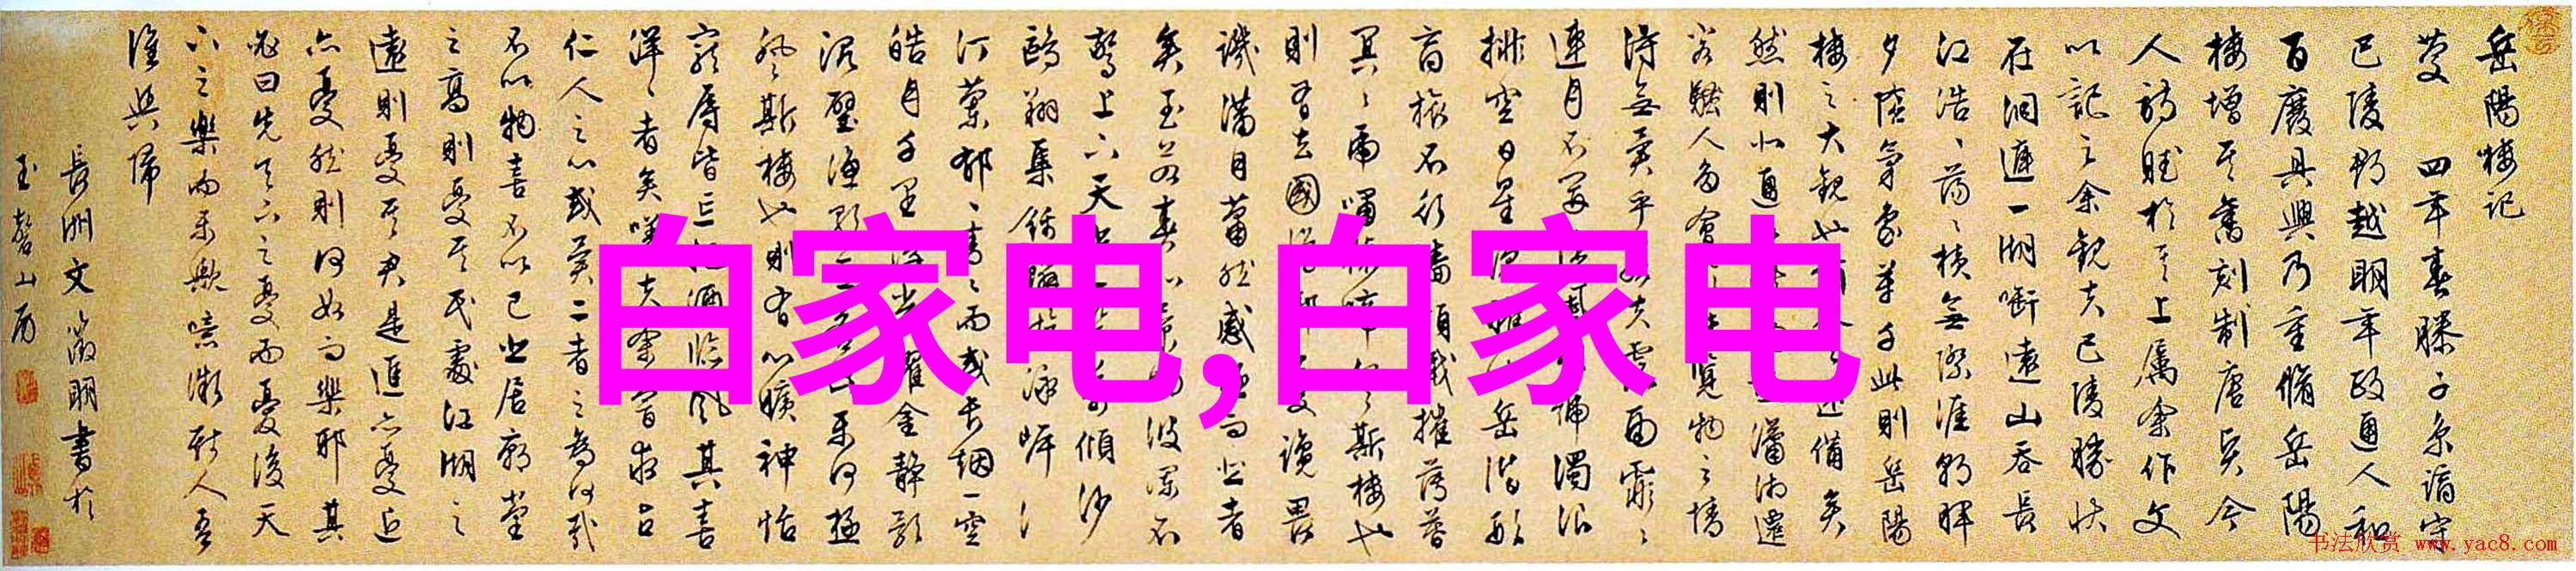 岳陽樓記
慶 四年春滕子京謫守
巴陵郡越明年政通人和
百廢具興乃重脩岳陽
樓增其舊刻制唐賢今
人詩賦於其上屬余作文
以記之余觀夫巴陵勝狀
在洞庭一湖啣遠山吞長
江浩〻蕩〻橫無際涯朝暉
夕陰氣象萬千此則岳陽
樓之大觀也前人之述備矣
然則北通瀟湘遷
客騷人多會於覽物之情
得無異乎若夫霪雨霏〻
連月不開陰風濁浪
排空日星隱曜山岳潛形
商旅不行檣傾楫摧薄暮
冥〻虎嘯猿啼登斯樓也
則有去國懷鄉憂讒畏
譏滿目蕭然感極而悲者
矣至若春和景明波瀾不
驚上下天光一碧萬頃沙
鷗翔集錦鱗游泳岸芷
汀蘭郁〻青〻而或長烟一空
皓月千里浮光耀金靜影
沉璧漁歌互答此樂何極
登斯樓也則有心曠神怡
寵辱皆忘把酒臨風其喜
洋〻者矣嗟夫余嘗求古
仁人之心或異二者之為何哉
不以物喜不以己悲居廟堂
之高則憂其民處江湖之
遠則憂其君是進亦憂退
亦憂然則何如而樂耶其
必曰先天下之憂而憂後天
下之樂而樂歟噫微斯人吾
誰與歸
長洲文徵明書於
玉磬山房
白家电,白家电
书法欣赏 www.yac8.com